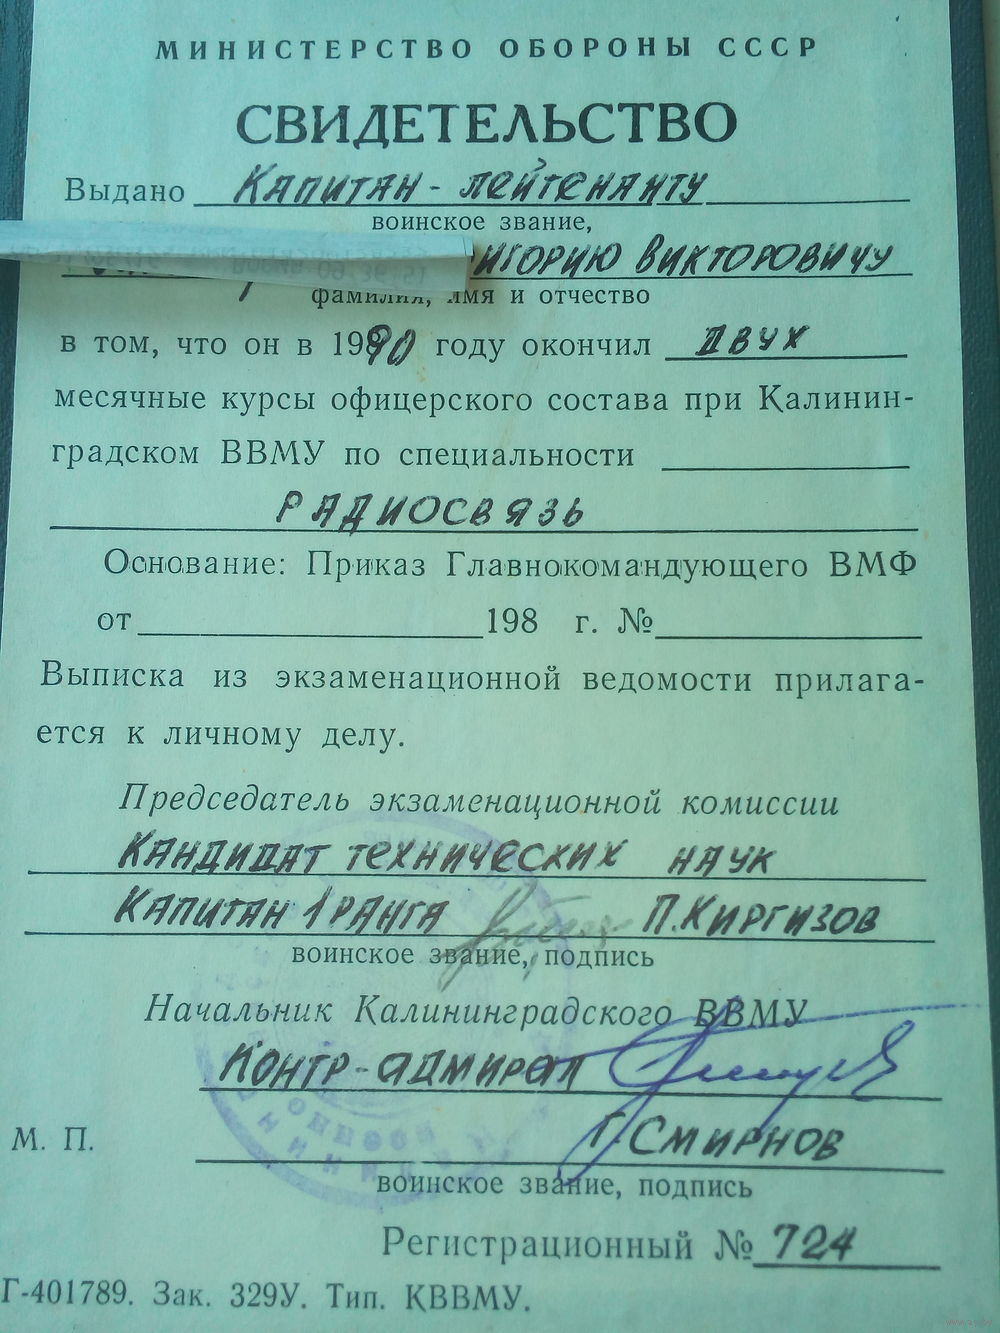 МИНИСТЕРСТВО ОБОРОНЫ СССР
СВИДЕТЕЛЬСТВО
Выдано Капитан-лейтенанту
воинское звание,
игорию Викторовичу
фамилия, имя и отчество
в том, что он в 1990 году окончил двух
месячные курсы офицерского состава при Калинин-
градском ВВМУ по специальности
радиосвязь
Основание: Приказ Главнокомандующего ВМФ
от 198 г. №
Выписка из экзаменационной ведомости прилага-
ется к личному делу.
Председатель экзаменационной комиссии
Кандидат технических наук
Капитан 1 ранга П. Киргизов
воинское звание, подпись
Начальник Калининградского ВВМУ
Контр-адмирал
Г. Смирнов
М. П.
воинское звание, подпись
Регистрационный № 724
Г-401789. Зак. 329У. Тип. КВВМУ.